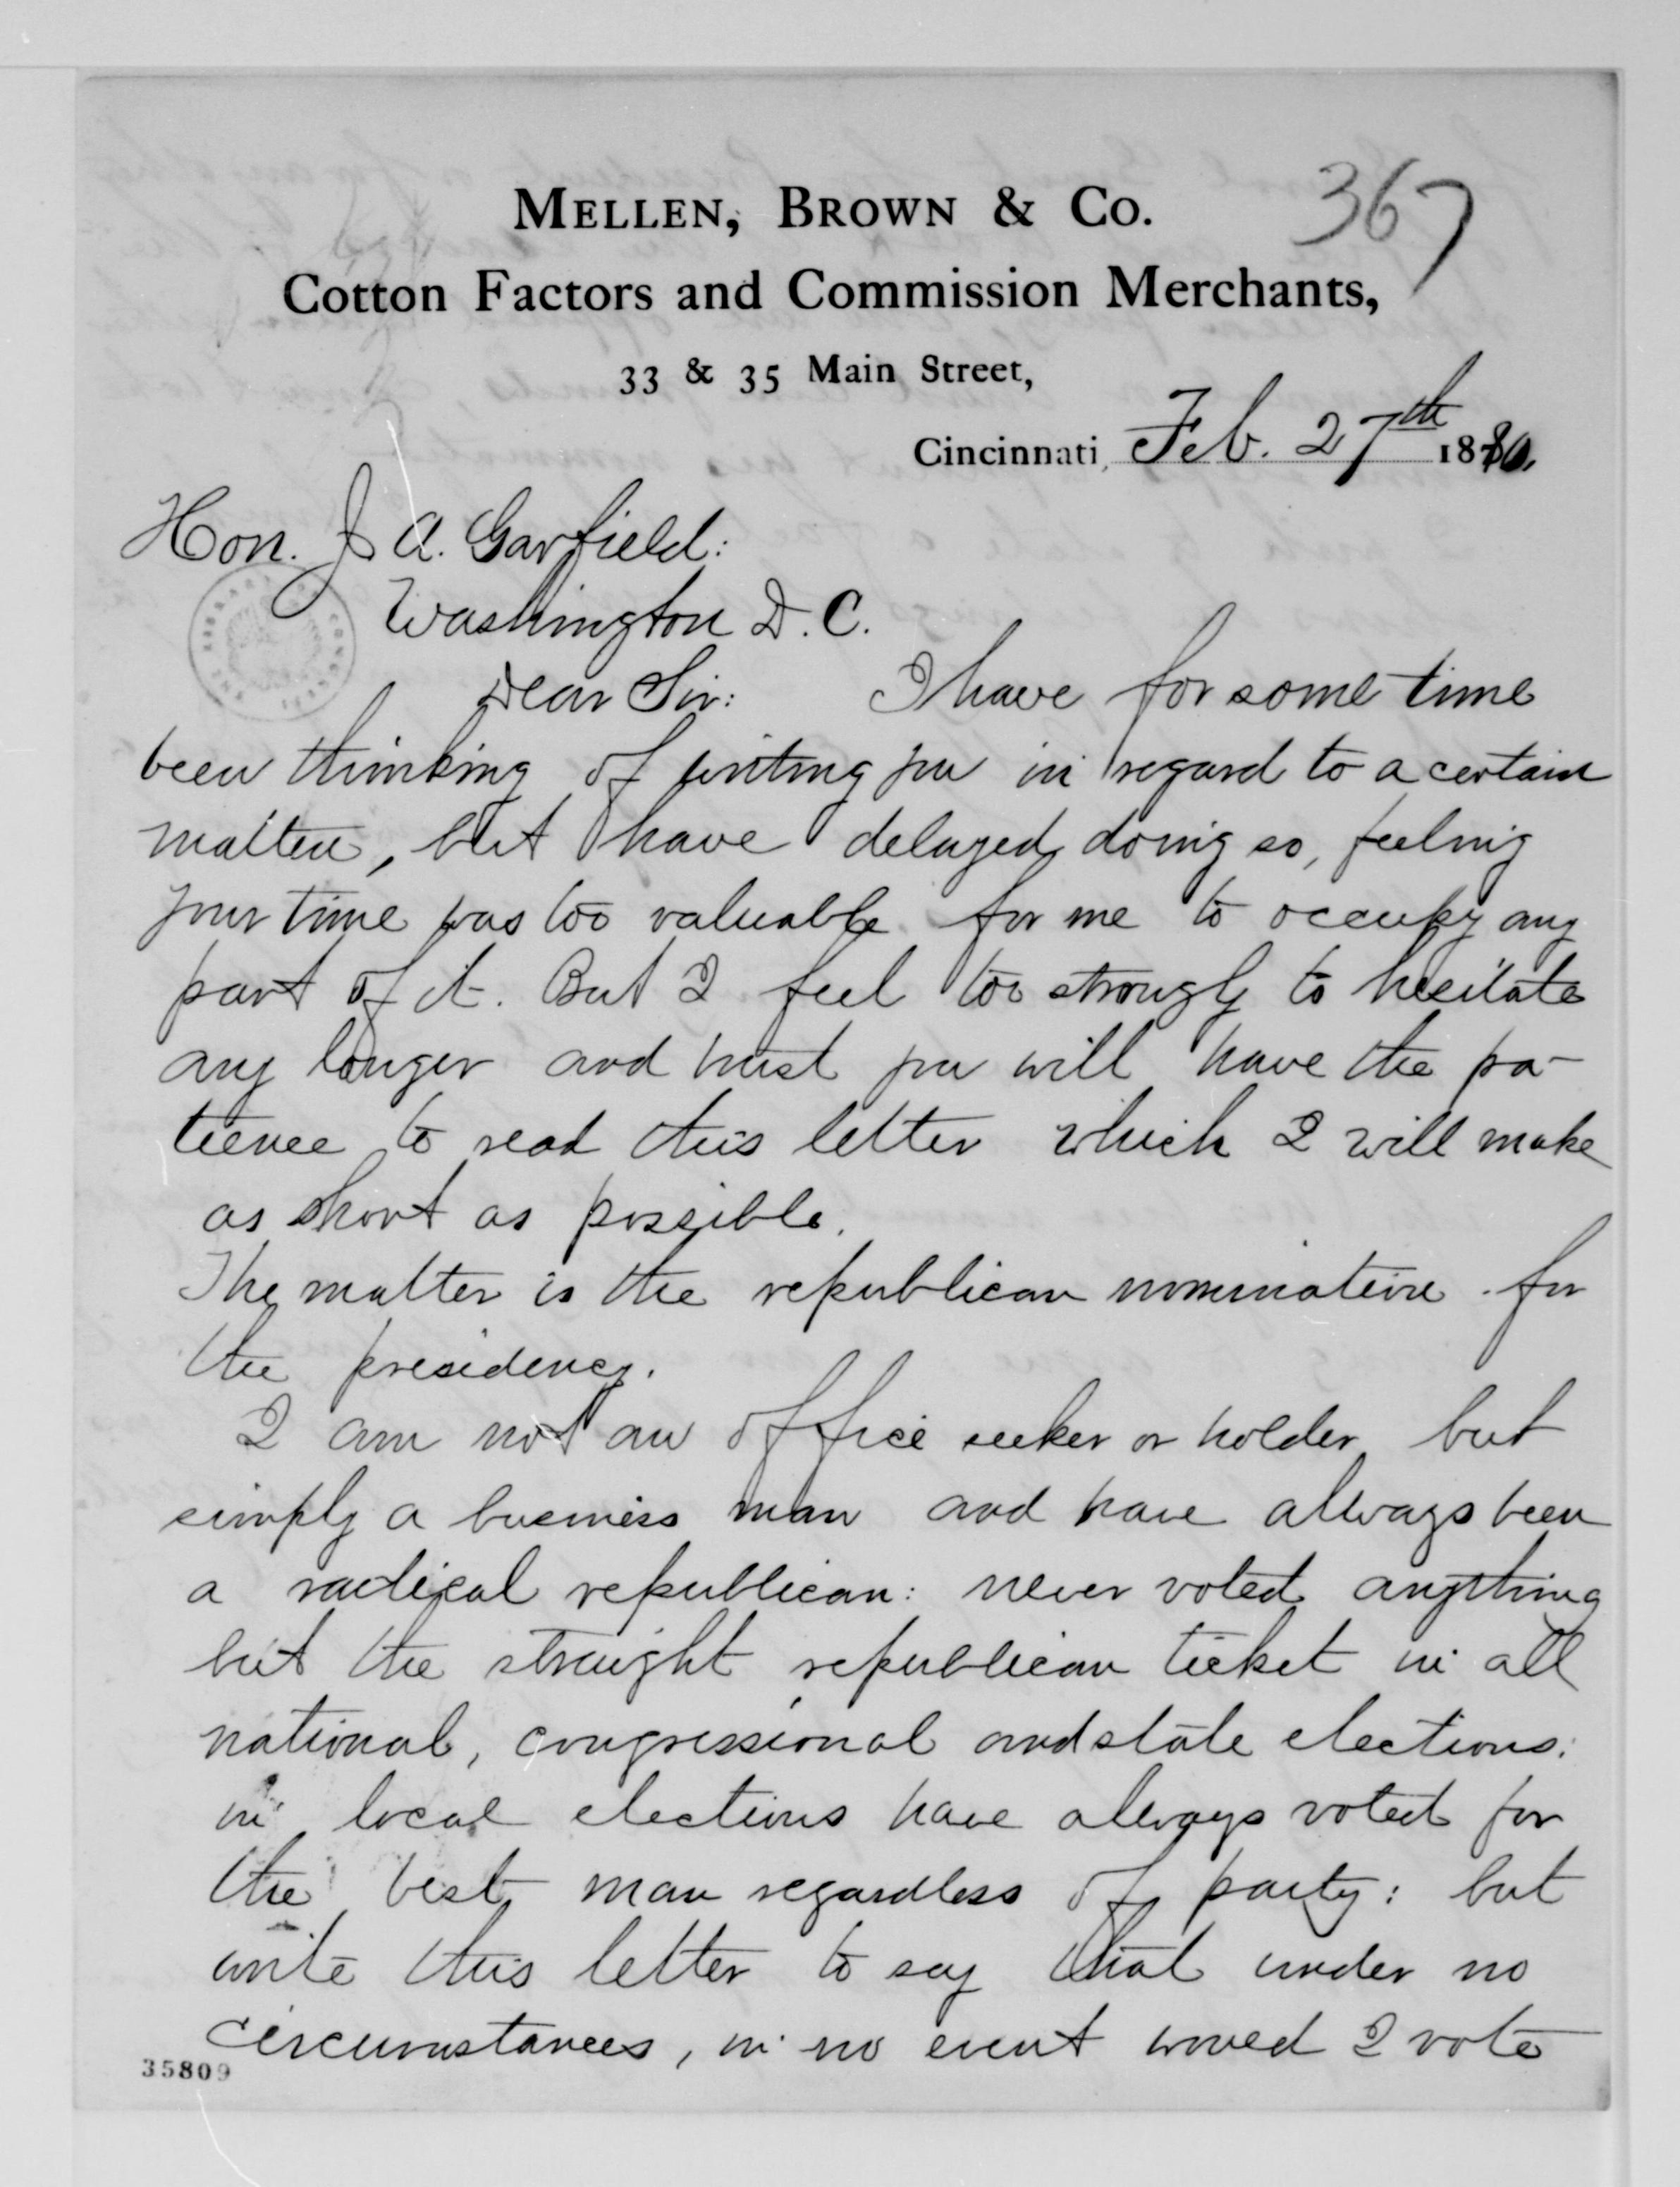 367
MELLEN, BROWN & CO.
Cotton Factors and Commission Merchants,
33 & 35 Main Street,
Cincinnati, Feb. 27th 1880.
Hon. J A. Garfield:
Washington D. C.
Dear Sir: I have for some time
been thinking of writing you in regard to a certain
matter, but have delayed doing so, feeling
your time was too valuable for me to occupy any
part of it. But I feel too strongly to hesitate
any longer and trust you will have the pa-
tience to read this letter which I will make
as short as possible.
The matter is the republican nomination for
the presidency.
I am not an office seeker or holder, but
simply a business man and have always been
a radical republican: never voted anything
but the straight republican ticket in all
national, congressional and state elections:
in local elections have always voted for
the best man regardless of party: but
write this letter to say that under no
circumstances, in no event would I vote
35809